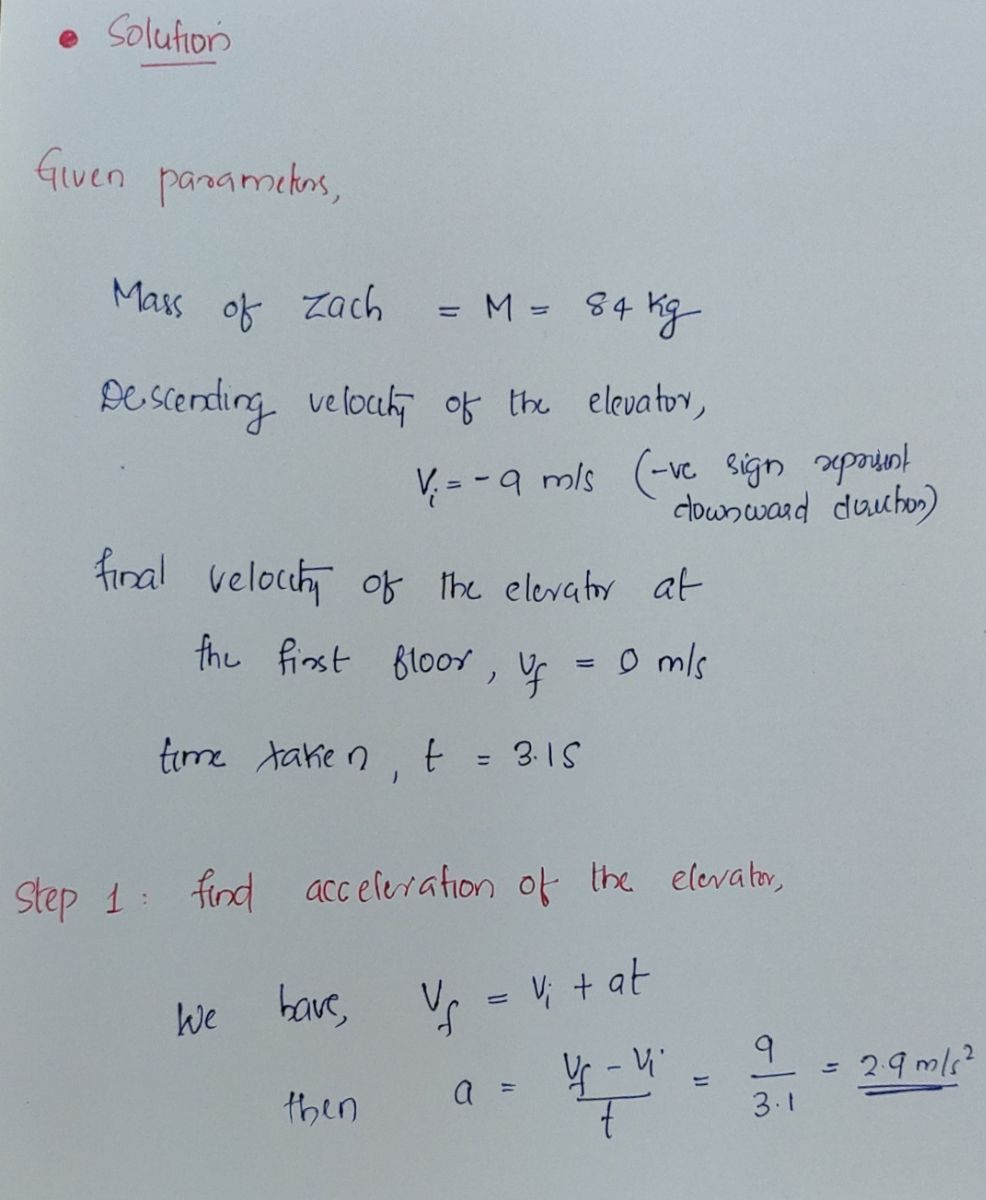 • Solution
Given parameters,
Mass of Zach = M = 84 kg
Descending velocity of the elevator,
Vᵢ = -9 m/s (-ve sign represent
downward direction)
final velocity of the elevator at
the first floor, Vf = 0 m/s
time taken, t = 3.1s
Step 1: find acceleration of the elevator,
We have, Vf = Vᵢ + at
then a = (Vf - Vᵢ)/t = 9/3.1 = 2.9 m/s²